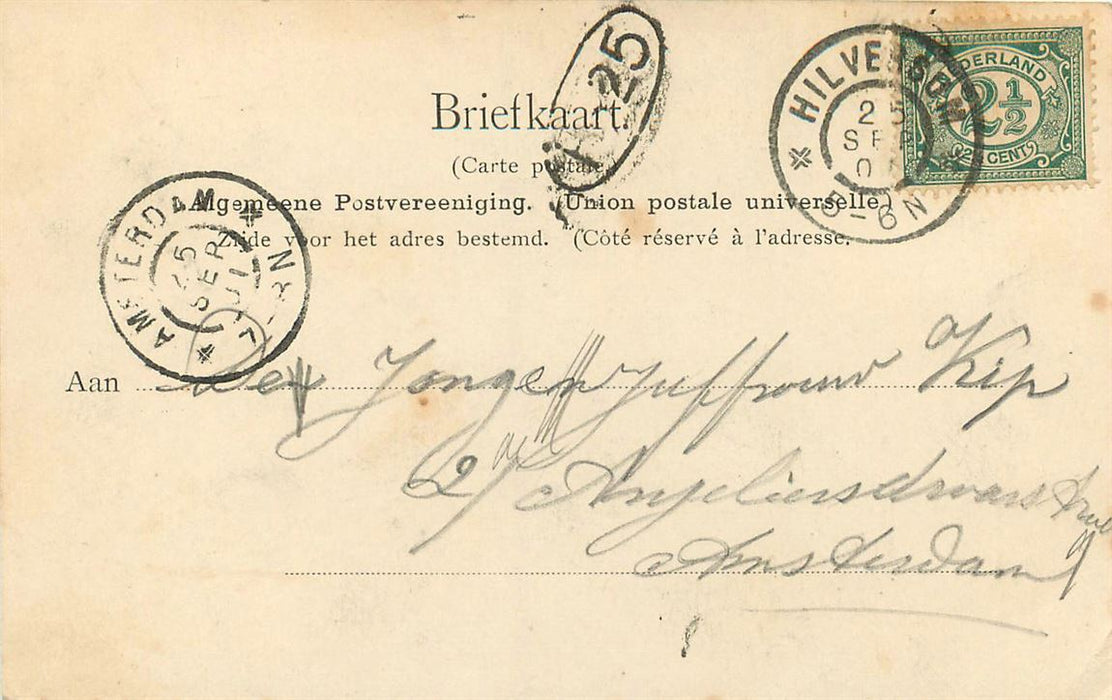 25
Briefkaart.
(Carte postale)
Algemeene Postvereeniging. (Union postale universelle.)
Zijde voor het adres bestemd. (Côté réservé à l'adresse.
HILVERSUM
25
SEP
5-6N
NEDERLAND
2½
(2½ CENT)
AMSTERDAM
25
SEP
01
7-8N
Aan
Jongejuffrouw Kip
2e Anjeliersdwarsstraat
Amsterdam